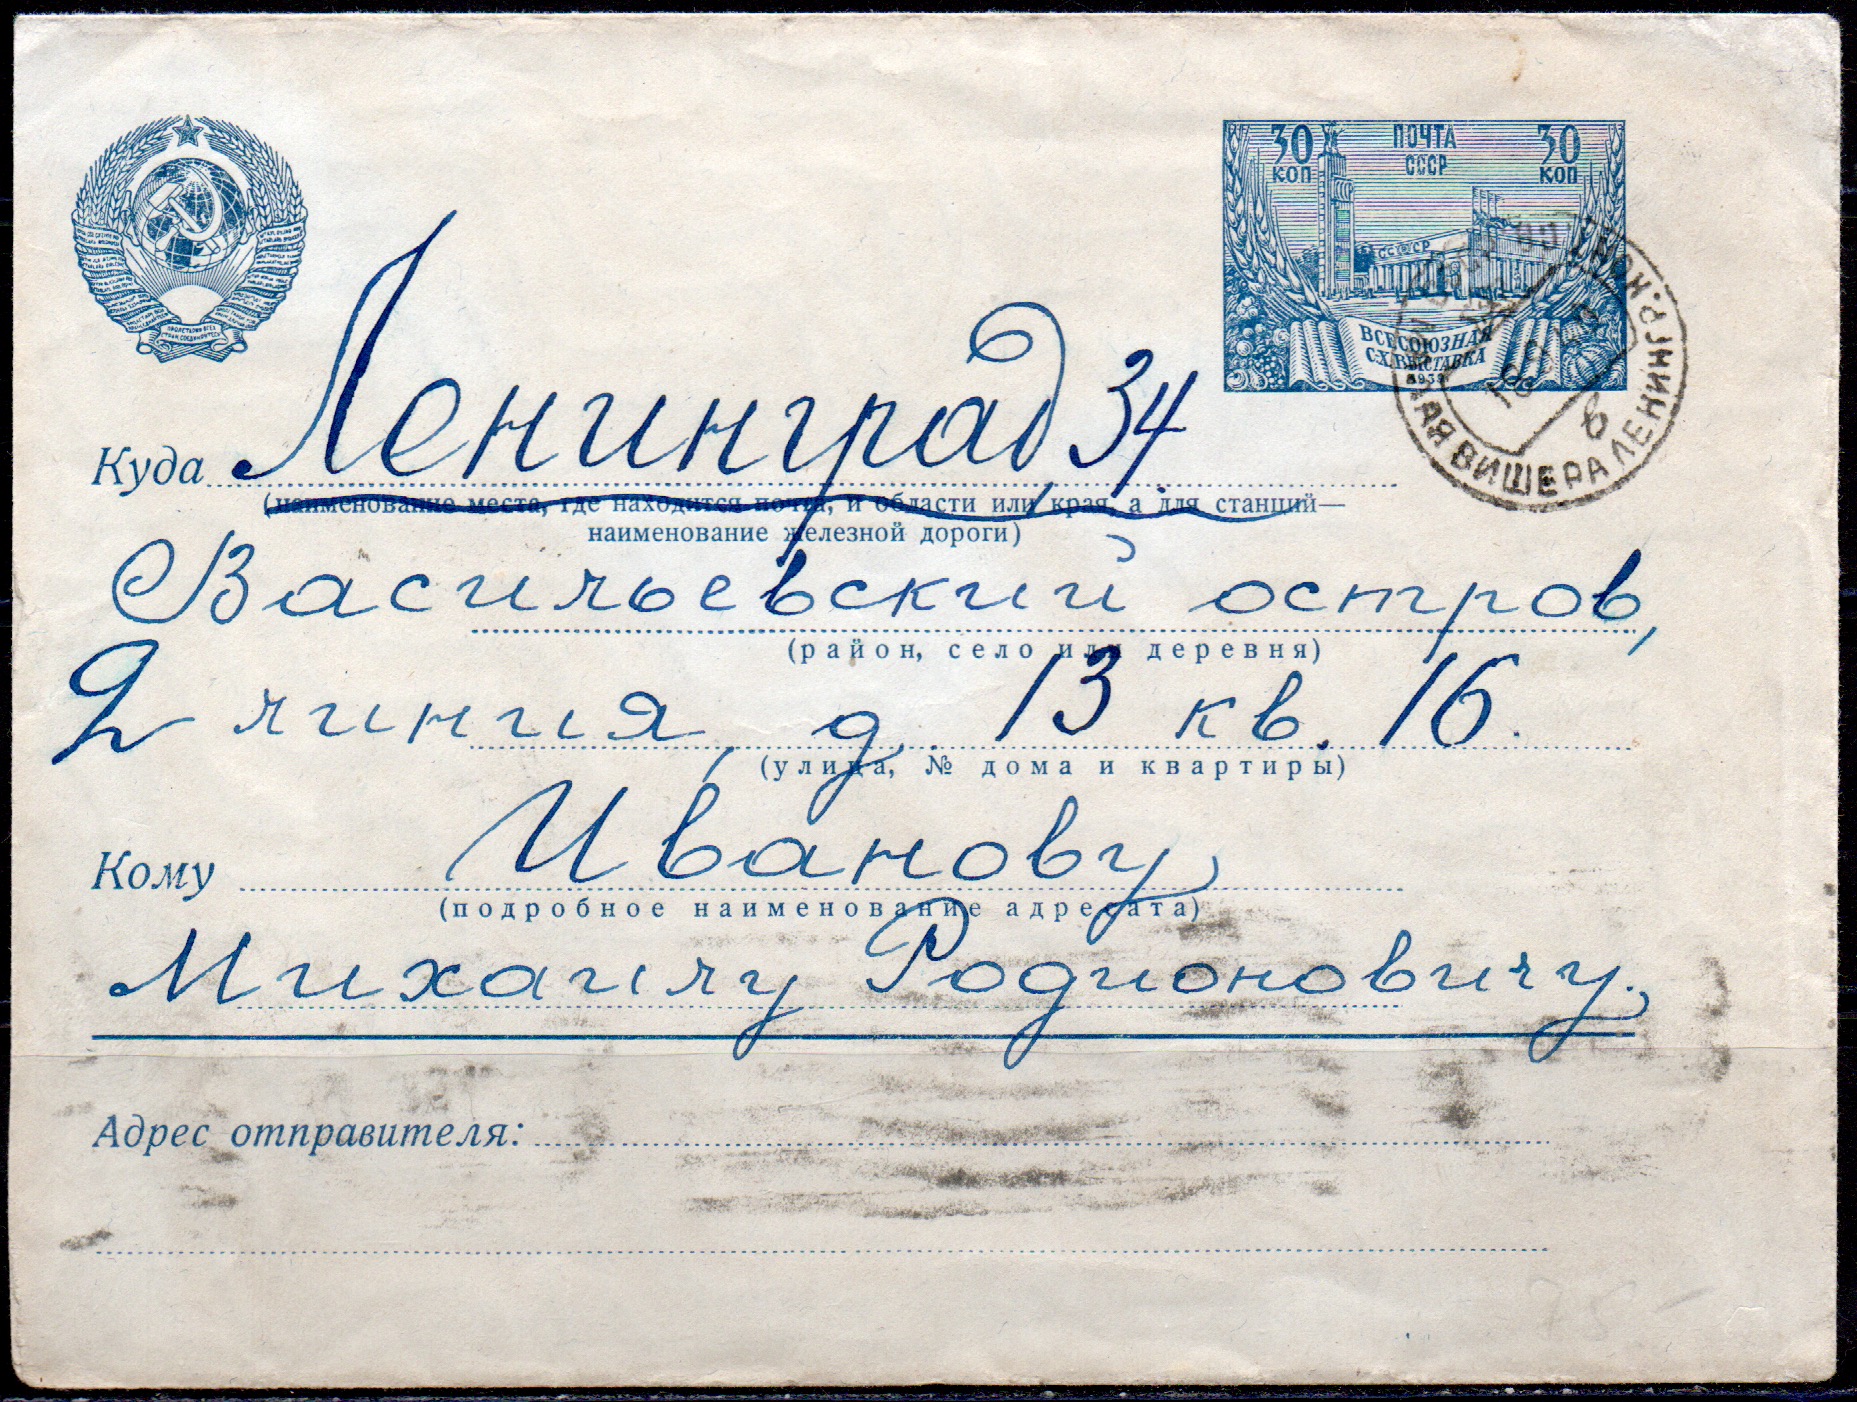 30 ПОЧТА 30
КОП СССР КОП
СССР
ВСЕСОЮЗНАЯ
С.Х.ВЫСТАВКА
1939
ВИШЕРА ЛЕНИНГР.
в
ПРОЛЕТАРИИ ВСЕХ
СТРАН, СОЕДИНЯЙТЕСЬ
Куда Ленинград, 34.
(наименование места, где находится почта, и области или края, а для станций—
наименование железной дороги)
Васильевский остров,
(район, село или деревня)
2 линия, д. 13 кв. 16.
(улица, № дома и квартиры)
Кому Иванову
(подробное наименование адресата)
Михаилу Родионовичу.
Адрес отправителя: